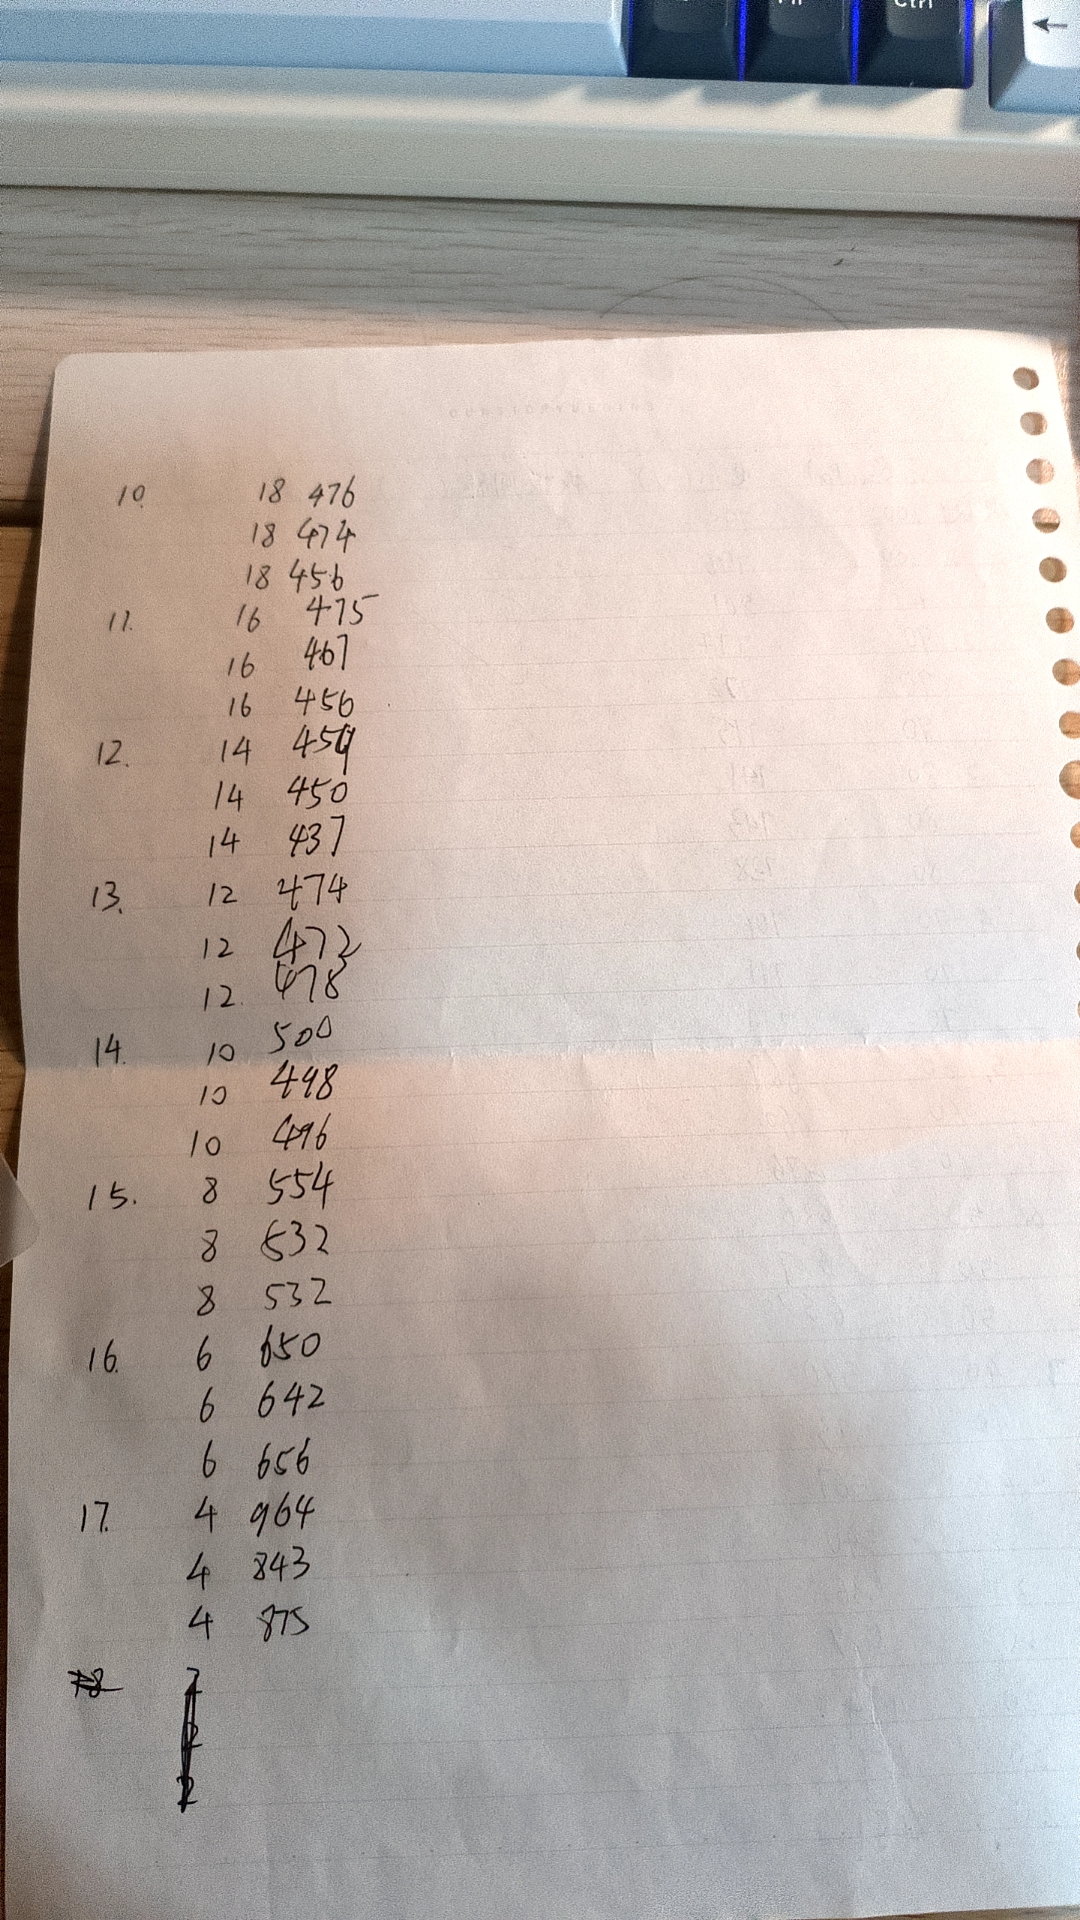 Ctrl
←
10. 18 476
18 474
18 456
11. 16 475
16 467
16 456
12. 14 459
14 450
14 437
13. 12 474
12 472
12. 478
14. 10 500
10 498
10 496
15. 8 554
8 532
8 532
16. 6 650
6 642
6 656
17. 4 964
4 843
4 875
18 2
2
2